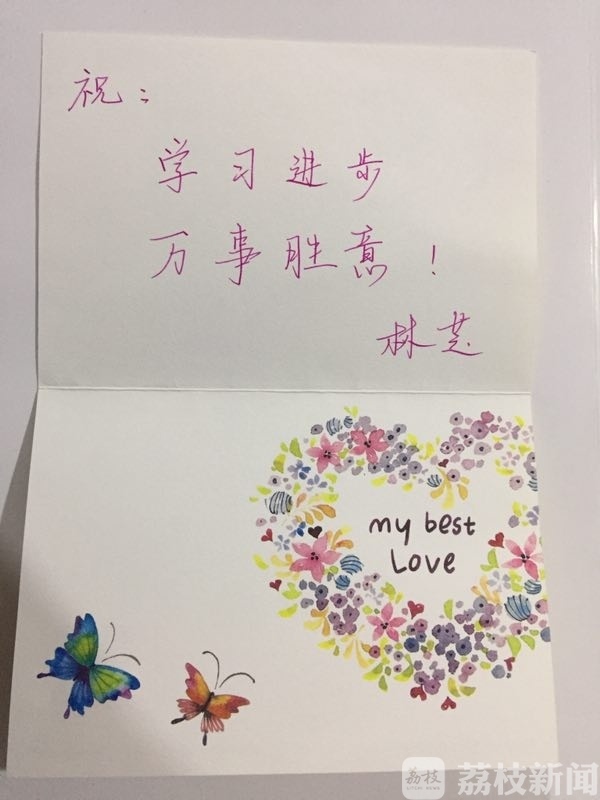 祝：
学习进步
万事胜意！
林芝
my best
Love
荔枝新闻